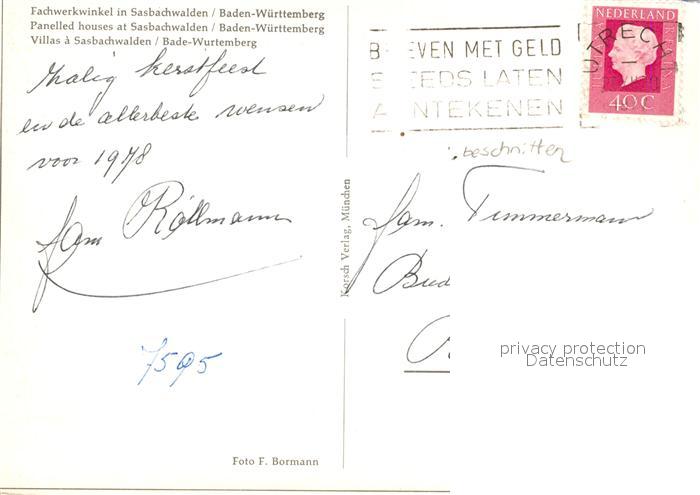 Fachwerkwinkel in Sasbachwalden / Baden-Württemberg
Panelled houses at Sasbachwalden / Baden-Württemberg
Villas à Sasbachwalden / Bade-Wurtemberg
Zalig kerstfeest
en de allerbeste wensen
voor 1978
fam Rollmann
7595
Foto F. Bormann
Korsch Verlag, München
B EVEN MET GELD
S EEDS LATEN
A NTEKENEN
UTRECH
NEDERLAND
40 C
beschnitten
fam. Timmermann
privacy protection
Datenschutz